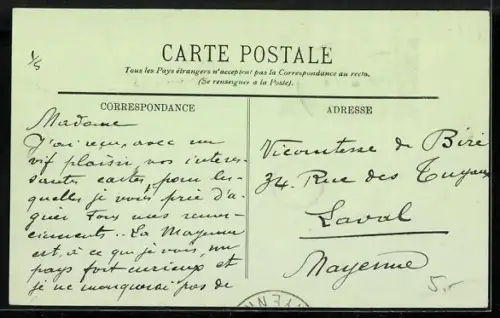 1/5
CARTE POSTALE
Tous les Pays étrangers n'acceptent pas la Correspondance au recto.
(Se renseigner à la Poste).
CORRESPONDANCE
Madame
J'ai reçu, avec un
vif plaisir, vos intéres-
santes cartes, pour les-
quelles je vous prie d'a-
gréer tous mes remer-
ciements. La Mayenne
est, à ce que je vois, un
pays fort curieux et
je ne manquerai pas de
ADRESSE
Vicomtesse de Biré
34 Rue des Tuyaux
Laval
Mayenne
5.-